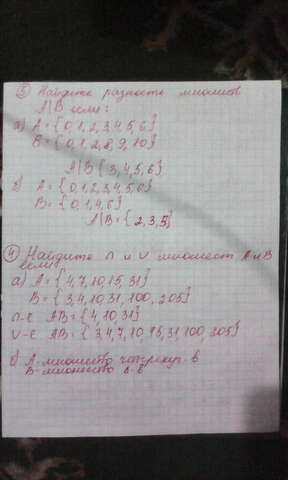 ⑤ Найдите разность множеств
A\B если:
а) A = {0,1,2,3,4,5,6}
B = {0,1,2,8,9,10}
A\B {3,4,5,6}
б) A = {0,1,2,3,4,5,6}
B = {0,1,4,6}
A\B = {2,3,5}
④ Найдите ∩ и ∪ множест A и B
если:
а) A = {4,7,10,15,31}
B = {3,4,10,31,100,205}
∩-е AB = {4,10,31}
∪-е AB = {3,4,7,10,15,31,100,205}
б) A-множество в
B-множество